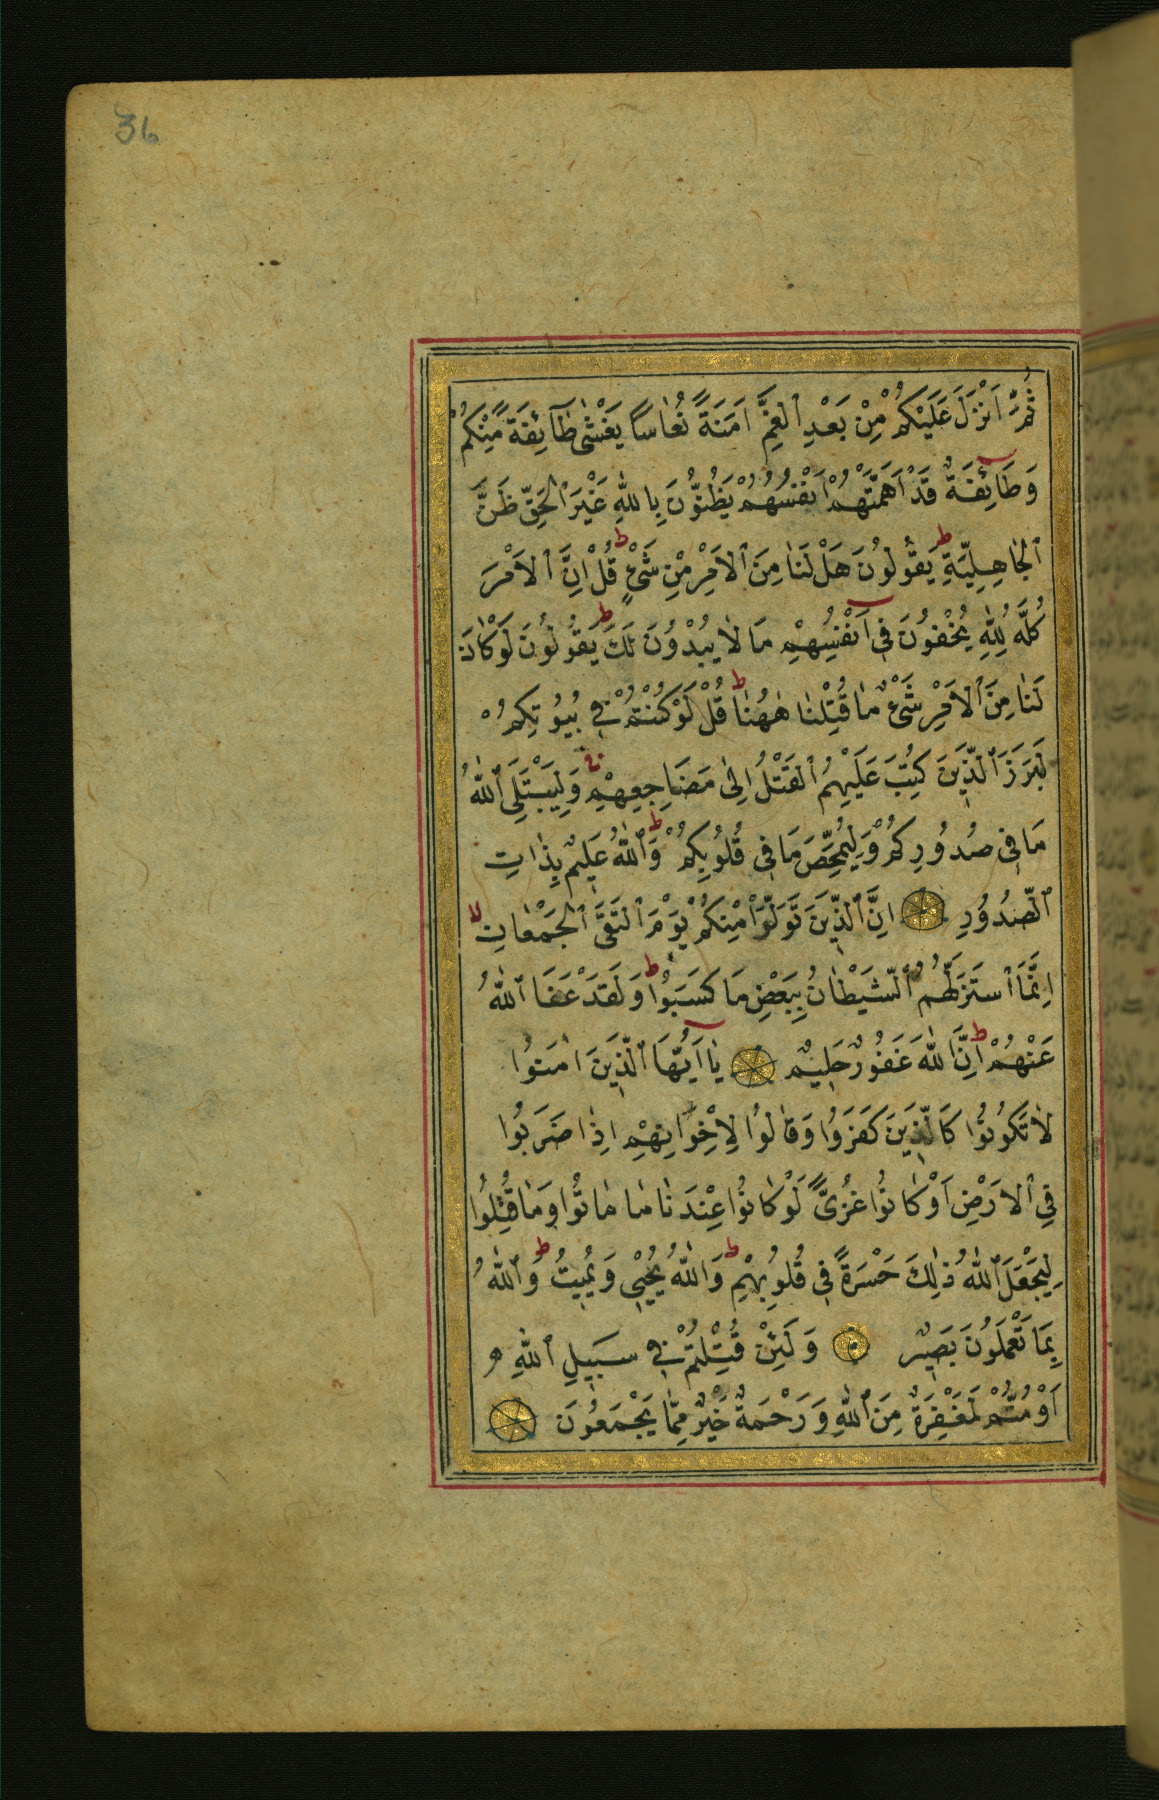 36
ثُمَّ اَنْزَلَ عَلَيْكُمْ مِنْ بَعْدِ ٱلْغَمِّ اَمَنَةً نُعَاسًا يَغْشٰى طَٓائِفَةً مِنْكُمْ
وَطَٓائِفَةٌ قَدْ اَهَمَّتْهُمْ اَنْفُسُهُمْ يَظُنُّونَ بِاللّٰهِ غَيْرَ ٱلْحَقِّ ظَنَّ
ٱلْجَاهِلِيَّةِ ط يَقُولُونَ هَلْ لَنَا مِنَ ٱلْاَمْرِ مِنْ شَيْءٍ ط قُلْ اِنَّ ٱلْاَمْرَ
كُلَّهُ لِلّٰهِ يُخْفُونَ فِي اَنْفُسِهِمْ مَا لَا يُبْدُونَ لَكَ ط يَقُولُونَ لَوْ كَانَ
لَنَا مِنَ ٱلْاَمْرِ شَيْءٌ مَا قُتِلْنَا هٰهُنَا ط قُلْ لَوْ كُنْتُمْ فِي بُيُوتِكُمْ
لَبَرَزَ ٱلَّذِينَ كُتِبَ عَلَيْهِمُ ٱلْقَتْلُ اِلٰى مَضَاجِعِهِمْ وَلِيَبْتَلِيَ ٱللّٰهُ
مَا فِي صُدُورِكُمْ وَلِيُمَحِّصَ مَا فِي قُلُوبِكُمْ ط وَٱللّٰهُ عَلِيمٌ بِذَاتِ
ٱلصُّدُورِ اِنَّ ٱلَّذِينَ تَوَلَّوْا مِنْكُمْ يَوْمَ ٱلْتَقَى ٱلْجَمْعَانِ لا
اِنَّمَا ٱسْتَزَلَّهُمُ ٱلشَّيْطَانُ بِبَعْضِ مَا كَسَبُوا ط وَلَقَدْ عَفَا ٱللّٰهُ
عَنْهُمْ ط اِنَّ ٱللّٰهَ غَفُورٌ حَلِيمٌ يَا اَيُّهَا ٱلَّذِينَ اٰمَنُوا
لَا تَكُونُوا كَالَّذِينَ كَفَرُوا وَقَالُوا لِاِخْوَانِهِمْ اِذَا ضَرَبُوا
فِي ٱلْاَرْضِ اَوْ كَانُوا غُزًّى لَوْ كَانُوا عِنْدَنَا مَا مَاتُوا وَمَا قُتِلُوا
لِيَجْعَلَ ٱللّٰهُ ذٰلِكَ حَسْرَةً فِي قُلُوبِهِمْ ط وَٱللّٰهُ يُحْيِي وَيُمِيتُ ط وَٱللّٰهُ
بِمَا تَعْمَلُونَ بَصِيرٌ وَلَئِنْ قُتِلْتُمْ فِي سَبِيلِ ٱللّٰهِ
اَوْ مُتُّمْ لَمَغْفِرَةٌ مِنَ ٱللّٰهِ وَرَحْمَةٌ خَيْرٌ مِمَّا يَجْمَعُونَ